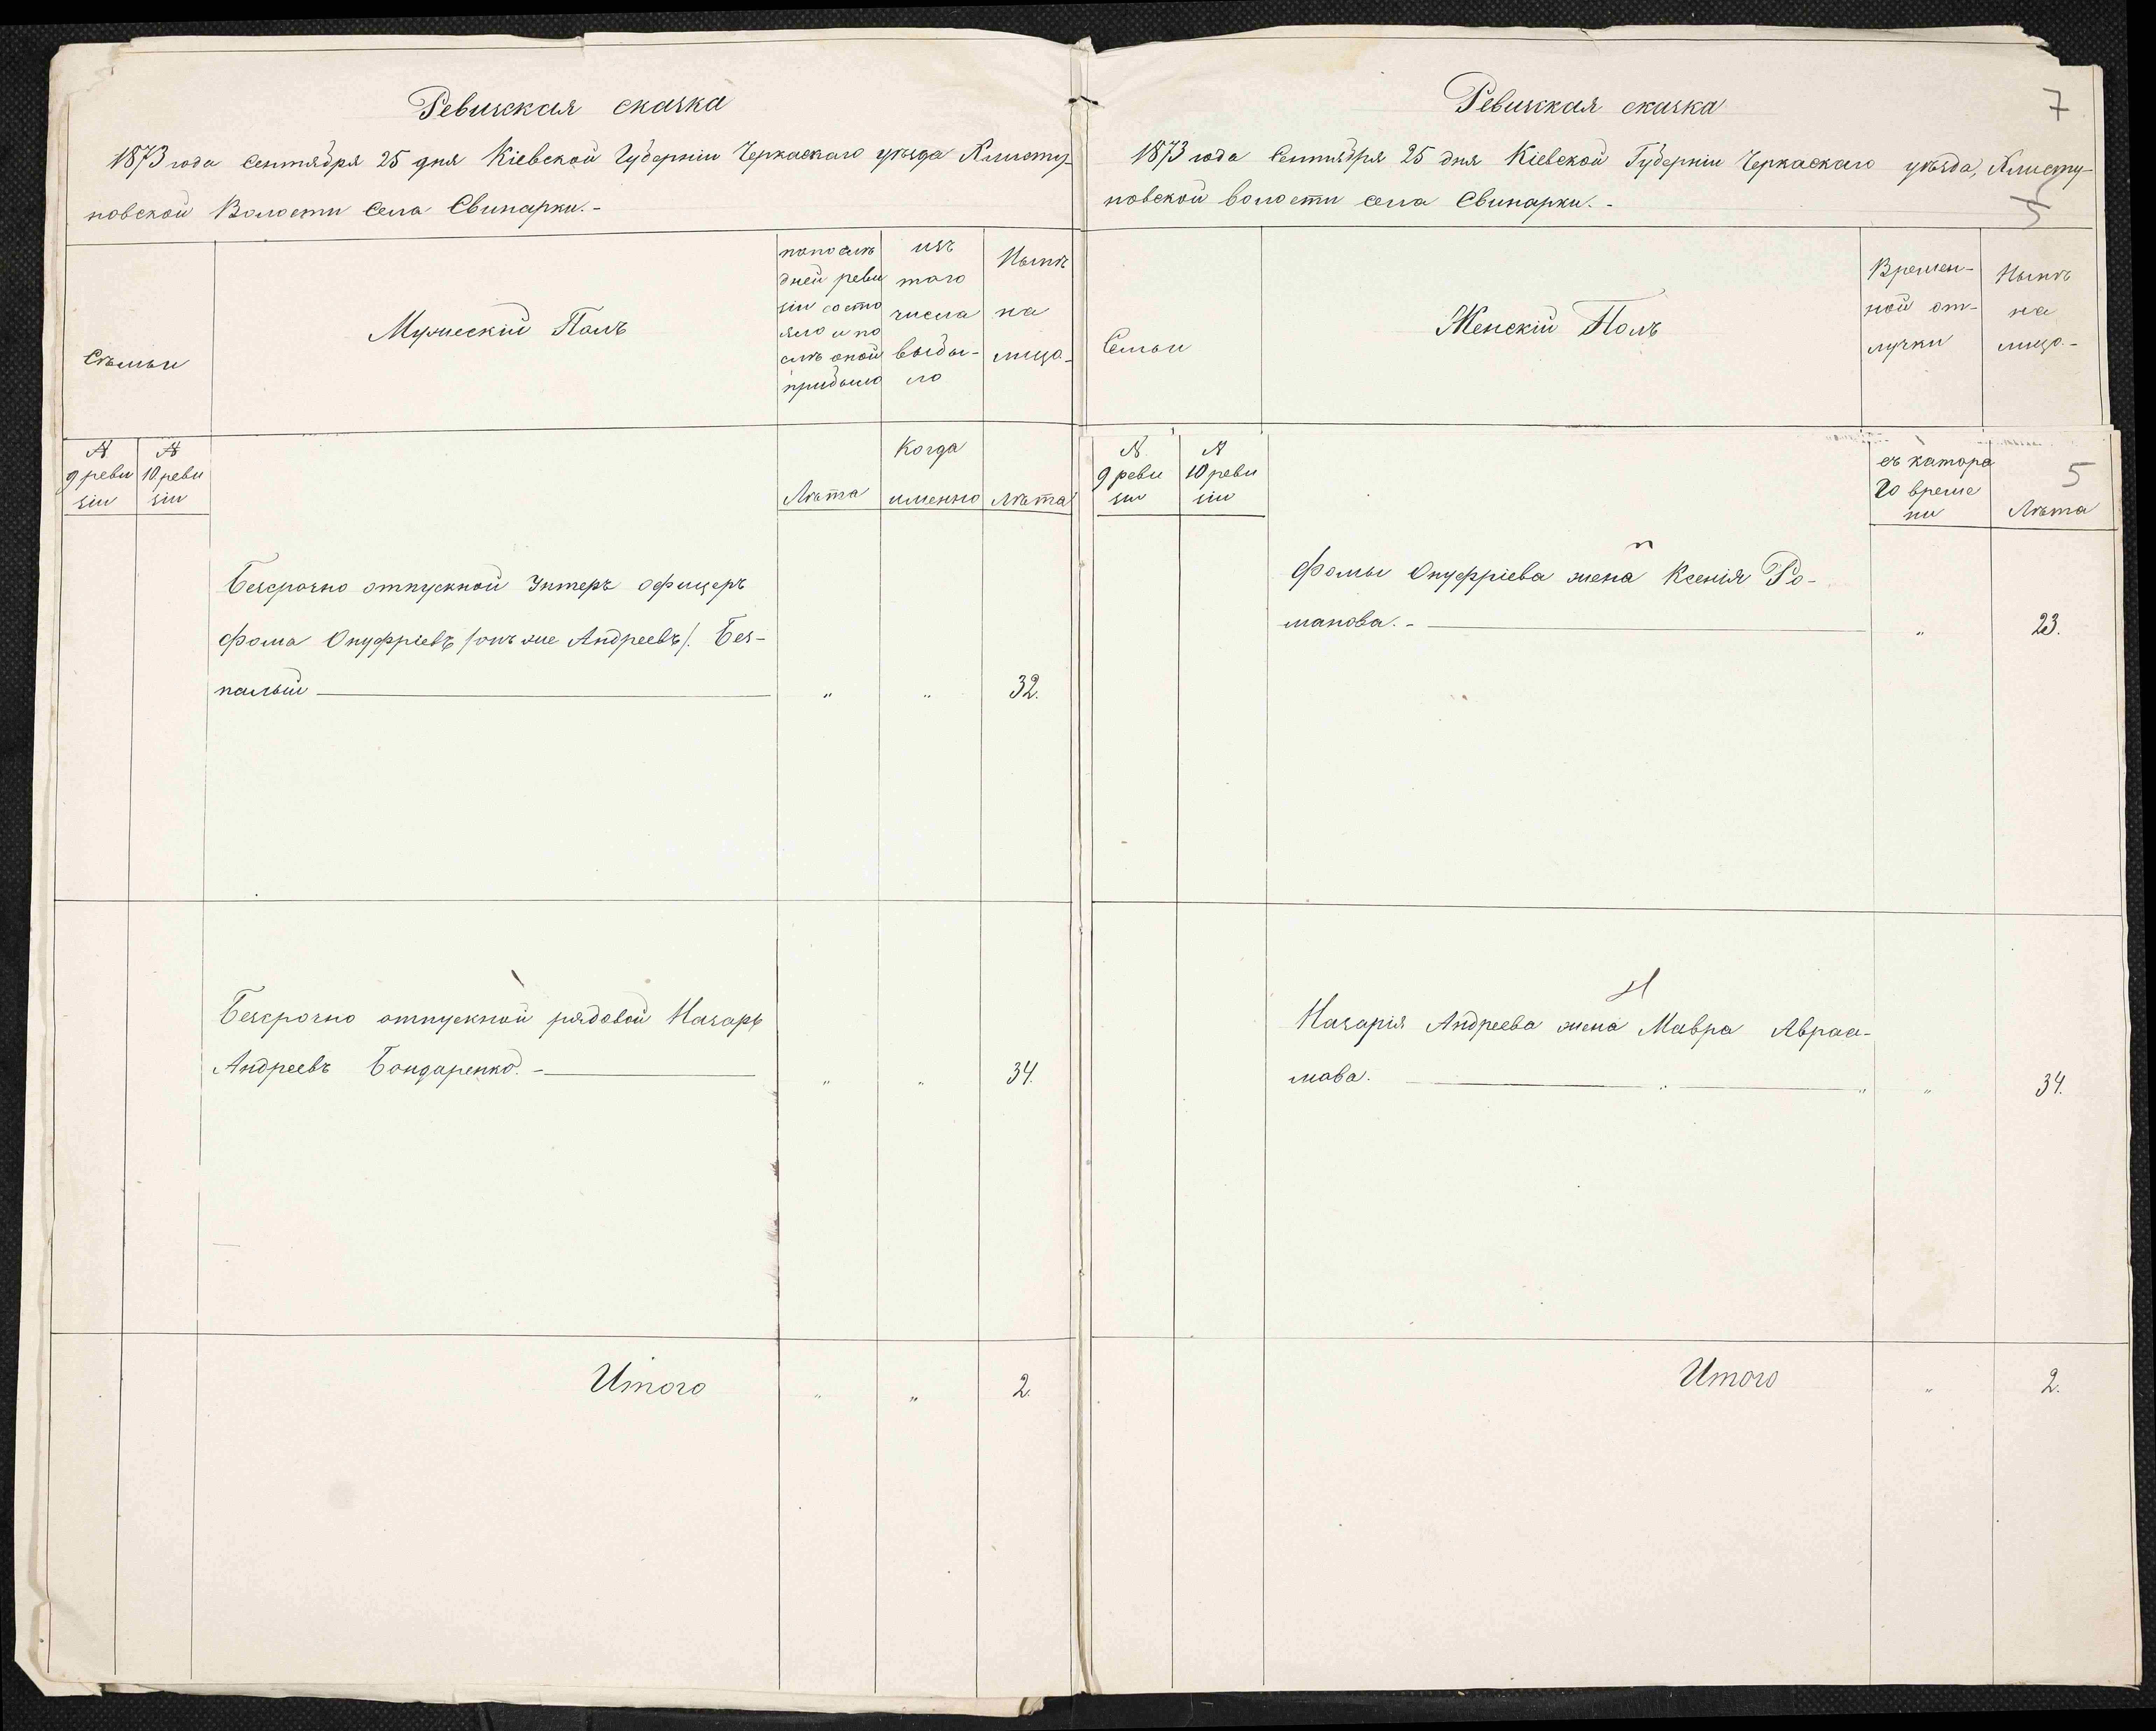 Ревизская сказка
1873 года Сентября 25 дня Кіевской Губерніи Черкаскаго уѣзда Клисту-
новской Волости Села Свинарки.-
Сѣмьи
Мужескій Полъ
по послѣ
дней реви
зіи состо
яло и по
слѣ оной
прибыло
изъ
того
числа
выбы-
ло
Нынѣ
на
лицо-
№
9 реви
зіи
№
10 реви
зіи
Лѣта
Когда
именно
Лѣта
Безсрочно отпускной Унтеръ офицеръ
Фома Онуфріевъ /онъ же Андреевъ/. Без-
палый
"
"
32.
Безсрочно отпускной рядовой Назарь
Андреевъ Бондаренко.-
"
"
34.
Итого
"
"
2.
7
Ревизская сказка
1873 года Сентября 25 дня Кіевской Губерніи Черкаскаго уѣзда, Клисту-
новской волости села Свинарки.-
5
Семьи
Женскій Полъ
Времен-
ной от-
лучки
Нынѣ
на
лицо.-
№
9 реви
зіи
№
10 реви
зіи
съ каторо
го време
ни
5
Лѣта
Фомы Онуфріева жена Ксенія Ро-
манова.-
"
23.
Назарія Андреева жена Мавра Авраа-
мова.
"
34.
Итого
"
2.